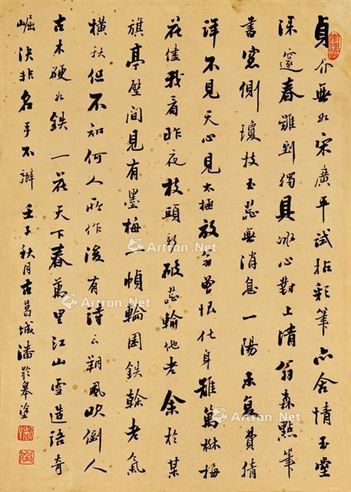 貞介無如宋廣平試拈彩筆亦含情玉堂
深邃春難到獨具冰心對上清翁真點筆
書窓側瓊枝玉蕊無消息一陽未復費猜
詳不見天心見太極放翁曾恨化身難萬樹梅
花儘我看昨夜枝頭新破蕊輪他老余於某
旗亭壁間見有墨梅一幀輪囷鉄榦老氣
橫秋但不知何人所作後有詩云朔風吹倒人
古木硬如鉄一花天下春萬里江山雪造語奇
崛決非名手不辦壬子秋月古葛城潘齡皋塗
Artron.Net
Artron.Net
Artron.Net
Artron.Net